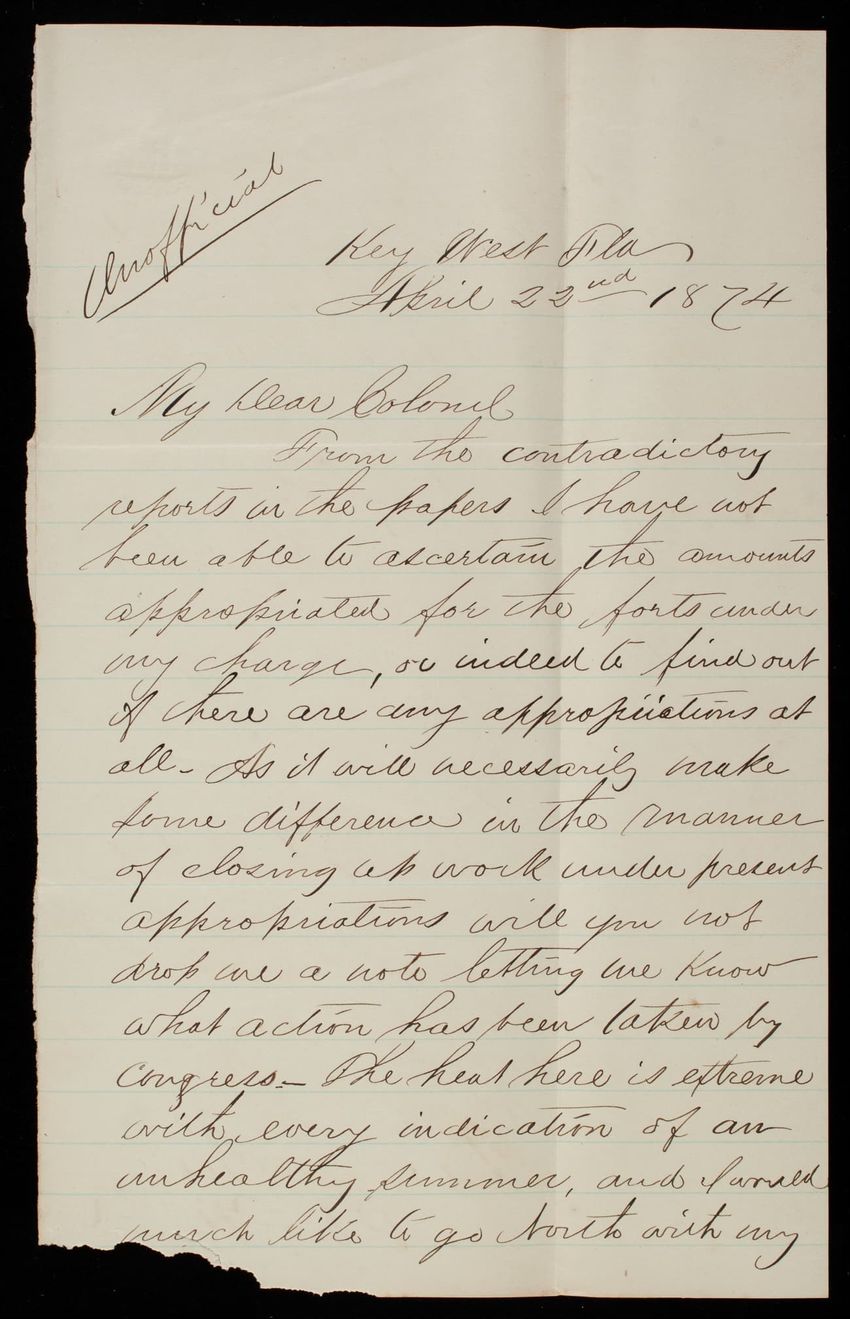 Unofficial
Key West Fla
April 22nd 1874
My Dear Colonel
From the contradictory
reports in the papers I have not
been able to ascertain the amounts
appropriated for the forts under
my charge, or indeed to find out
if there are any appropriations at
all - As it will necessarily make
some difference in the manner
of closing up work under present
appropriations will you not
drop me a note letting me know
what action has been taken by
congress - The heat here is extreme
with every indication of an
unhealthy summer, and I would
much like to go North with my